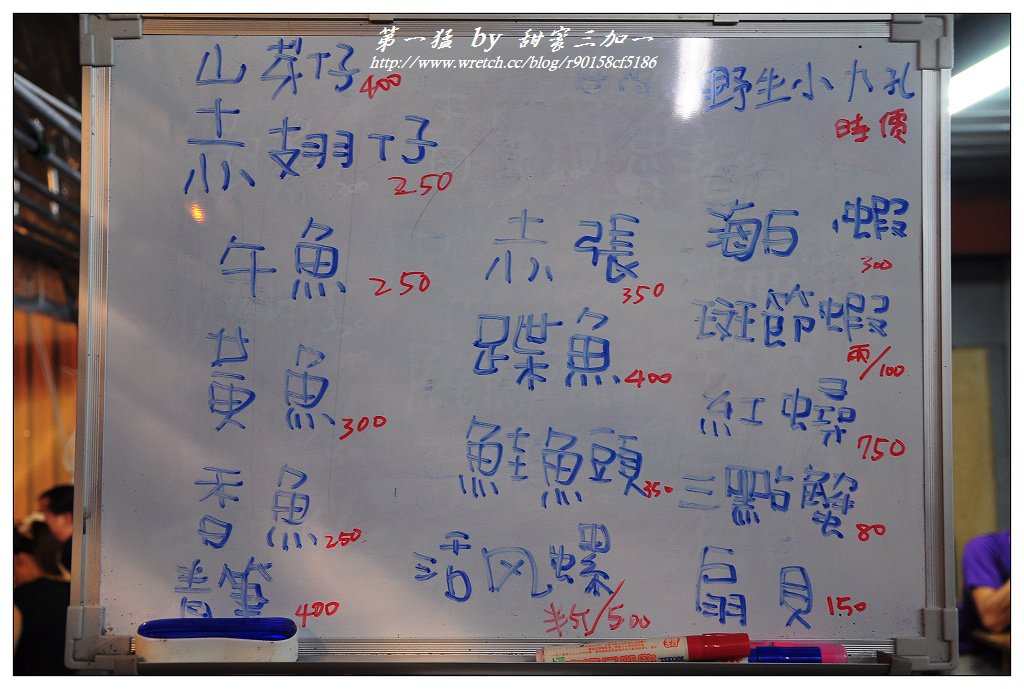 第一猛 by 甜蜜三加一
http://www.wretch.cc/blog/r90158cf5186
山芽仔
400
赤翅仔
250
午魚
250
黃魚
300
香魚
250
青筆
400
赤張
350
蹀魚
400
鮭魚頭
350
活风螺
半斤/500
野生小九孔
時價
海5虾
300
斑節蝦
兩/100
紅蟳
750
三點蟹
80
扇貝
150